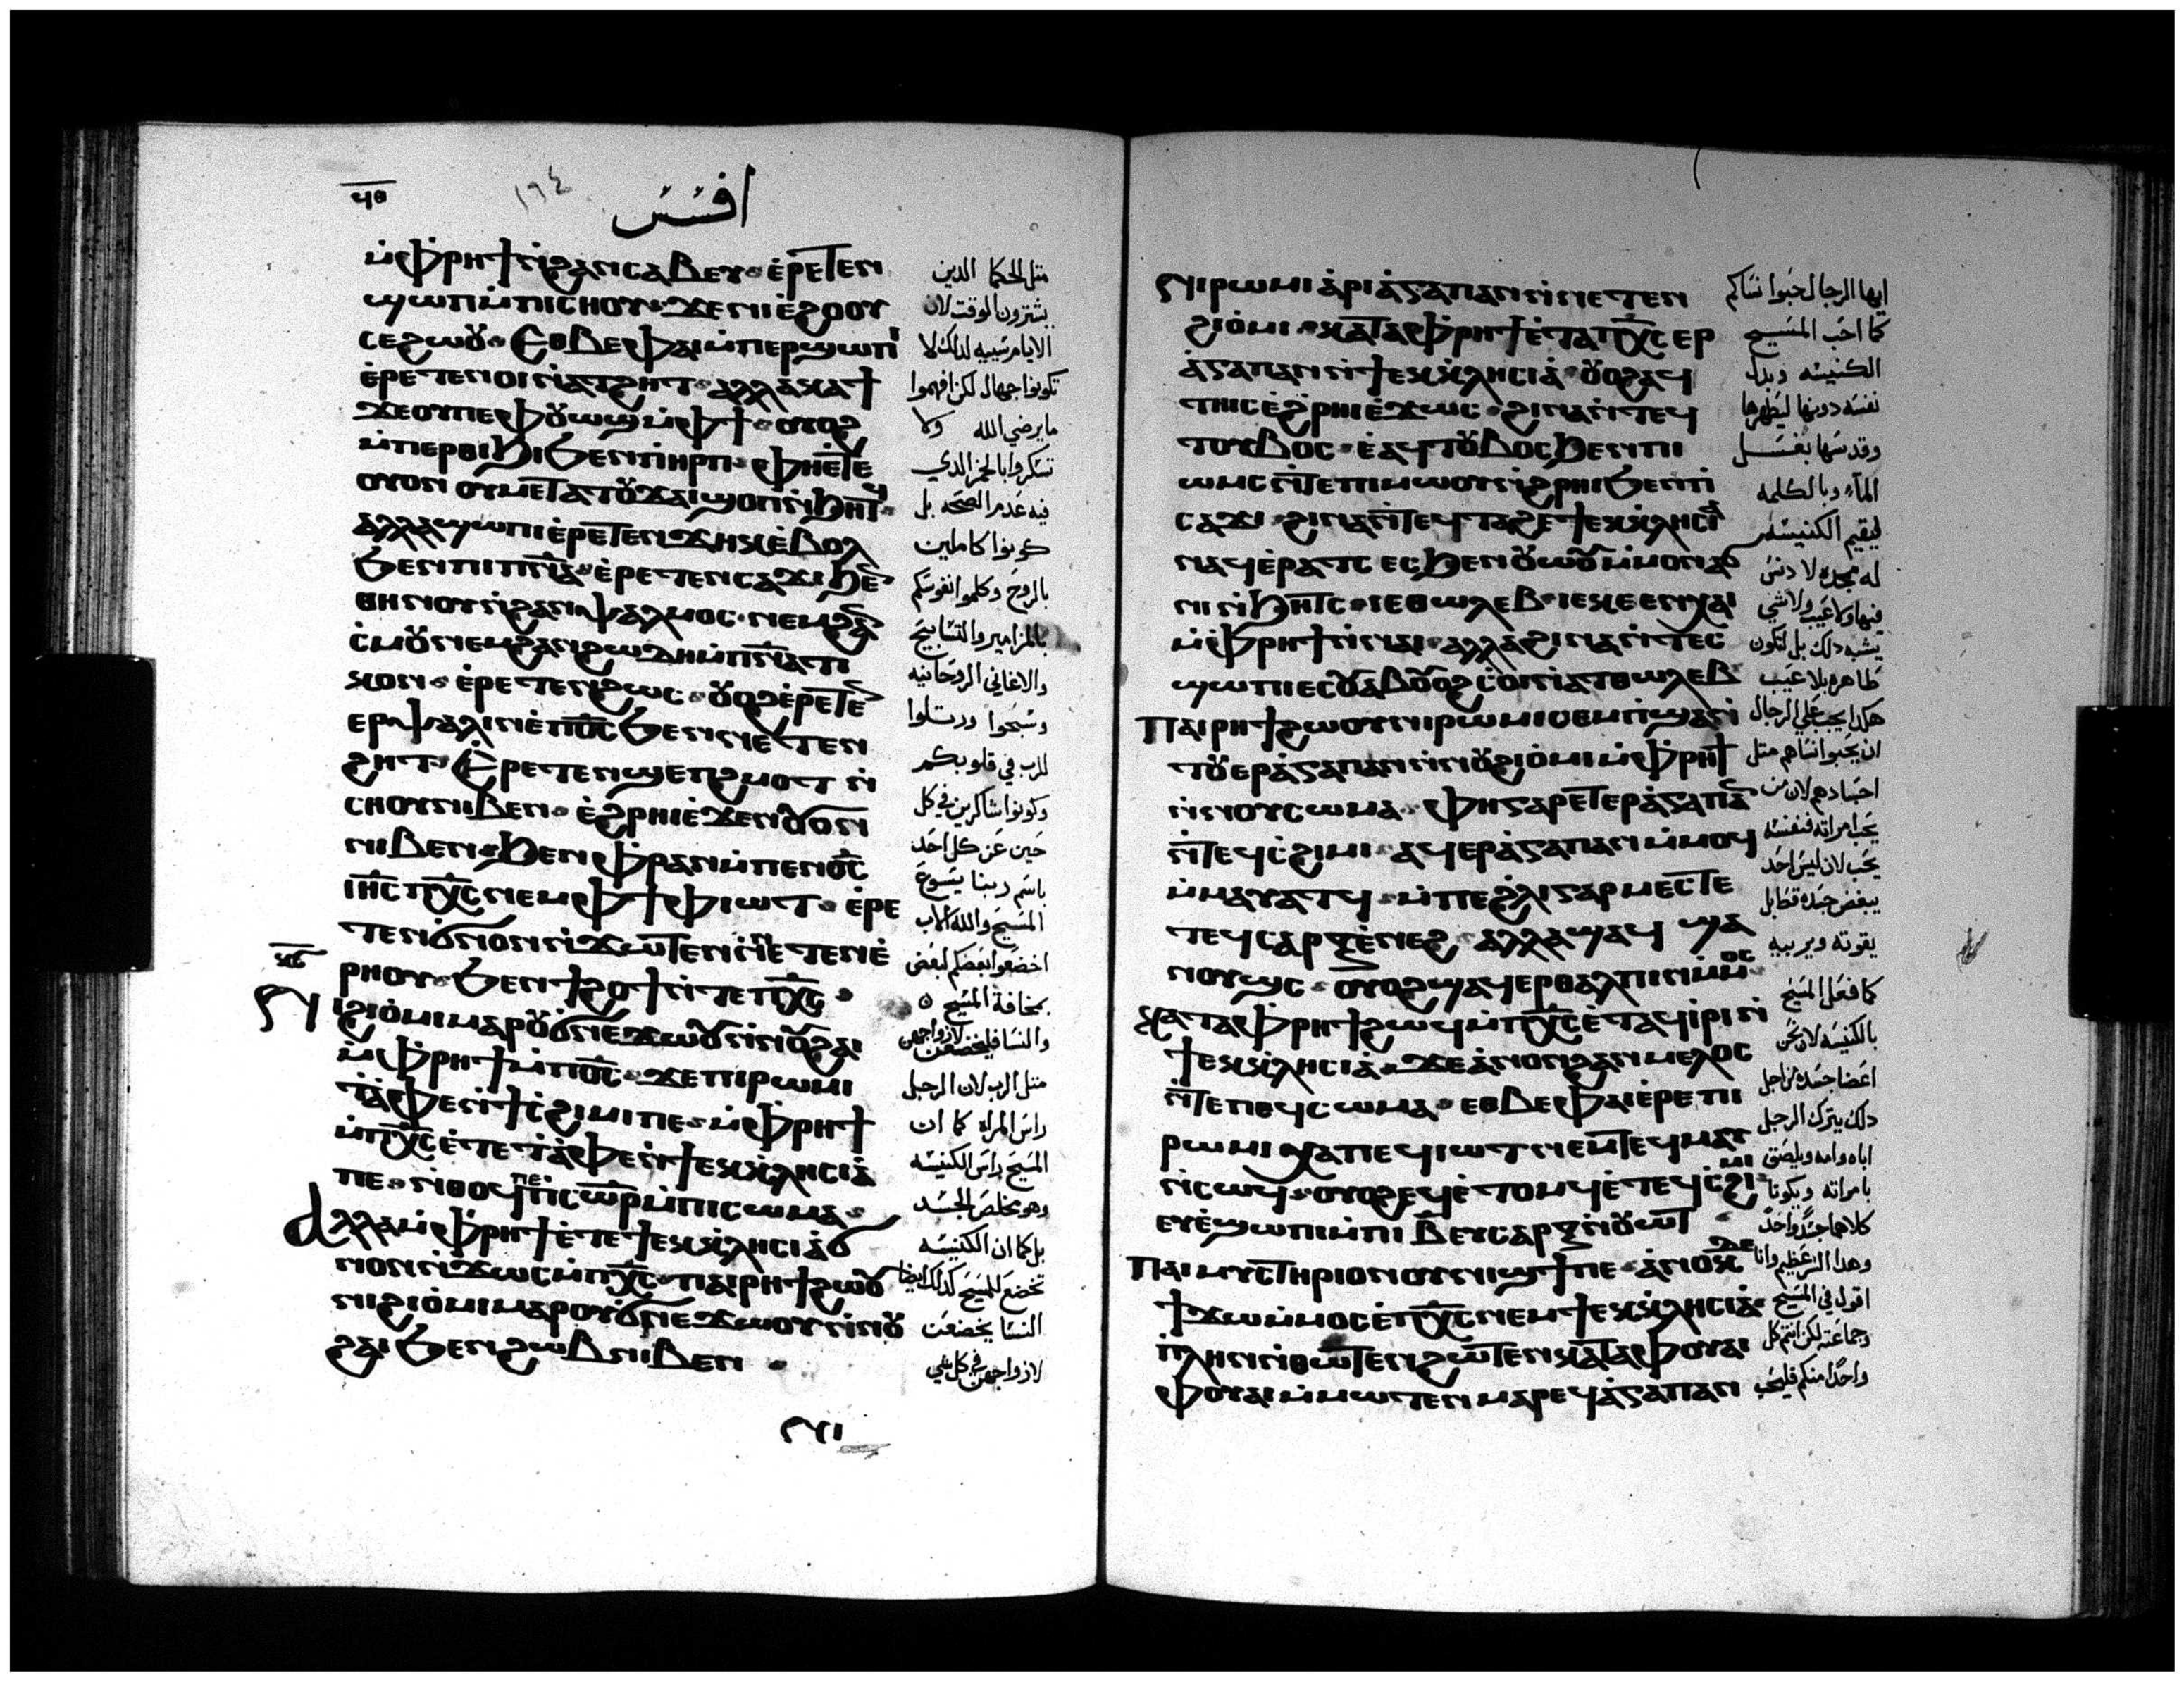 افسس
ⲙ̇ⲫ̇ⲣⲏϯ ⲛ̇ϩⲁⲛⲥⲁⲃⲉⲩ ⲉ̇ⲣⲉⲧⲉⲛ
ϣⲱⲡ ⲙ̇ⲡⲓⲥⲏⲟⲩ ϫⲉ ⲛⲓⲉ̇ϩⲟⲟⲩ
ⲥⲉϩⲱⲟⲩ ⲉⲑⲃⲉⲫⲁⲓ ⲙ̇ⲡⲉⲣϣⲱⲡⲓ
ⲉ̇ⲣⲉⲧⲉⲛⲟⲓ ⲛ̇ⲁⲧϩⲏⲧ ⲁⲗⲗⲁ ⲕⲁϯ
ϫⲉ ⲟⲩⲡⲉ ⲫⲟⲩⲱϣ ⲙ̇ⲫϯ ⲟⲩⲟϩ
ⲙ̇ⲡⲉⲣⲑⲓϧⲓ ϧⲉⲛ ⲡⲓⲏⲣⲡ ⲫⲏⲉ̇ⲧⲉ
ⲟⲩⲟⲛ ⲟⲩⲙⲉⲧⲁⲧⲟⲩϫⲁⲓ ϣⲟⲡ ⲛ̇ϧⲏⲧϥ
ⲁⲗⲗⲁ ϣⲱⲡⲓ ⲉ̇ⲣⲉⲧⲉⲛϫⲏⲕ ⲉ̇ⲃⲟⲗ
ϧⲉⲛ ⲡⲓⲡ̅ⲛ̅ⲁ̅ ⲉ̇ⲣⲉⲧⲉⲛⲥⲁϫⲓ ϧⲉⲛ
ⲑⲏⲛⲟⲩ ⲛ̇ϩⲁⲛⲯⲁⲗⲙⲟⲥ ⲛⲉⲙ ϩⲁⲛ
ⲥ̇ⲙⲟⲩ ⲛⲉⲙ ϩⲁⲛϩⲱⲇⲏ ⲙ̇ⲡ̅ⲛ̅ⲁ̅ⲧⲓ
ⲕⲟⲛ ⲉ̇ⲣⲉⲧⲉⲛϩⲱⲥ ⲟⲩⲟϩ ⲉ̇ⲣⲉⲧⲉⲛ
ⲉⲣⲯⲁⲗⲓⲛ ⲉ̇ⲡ̅ⲟ̅ⲥ̅ ϧⲉⲛ ⲛⲉⲧⲉⲛ
ϩⲏⲧ ⲉ̇ⲣⲉⲧⲉⲛϣⲉⲡϩⲙⲟⲧ ⲛ̇
ⲥⲏⲟⲩ ⲛⲓⲃⲉⲛ ⲉ̇ϩⲣⲏⲓ ⲉ̇ϫⲉⲛ ⲟⲩⲟⲛ
ⲛⲓⲃⲉⲛ ϧⲉⲛ ⲫ̇ⲣⲁⲛ ⲙ̇ⲡⲉⲛⲟ̅ⲥ̅
ⲓⲏ̅ⲥ̅ ⲡⲭ̅ⲥ̅ ⲛⲉⲙ ⲫϯ ⲫⲓⲱⲧ ⲉ̇ⲣⲉ
ⲧⲉⲛϭⲛⲟⲛ ⲛ̇ϫⲱⲧⲉⲛ ⲛ̇ⲛⲉⲧⲉⲛⲉ̇
ⲣⲏⲟⲩ ϧⲉⲛ ϯϩⲟϯ ⲛ̇ⲧⲉ ⲡⲭ̅ⲥ̅
ⲛⲓϩⲓⲟ̇ⲙⲓ ⲙⲁⲣⲟⲩϭⲛⲉϫⲱⲟⲩ ⲛ̇ⲛⲟⲩϩⲁⲓ
ⲙ̇ⲫ̇ⲣⲏϯ ⲙ̇ⲡ̅ⲟ̅ⲥ̅ ϫⲉ ⲡⲓⲣⲱⲙⲓ
ⲧ̇ⲁ̇ⲫⲉ ⲛ̇ϯⲥ̇ϩⲓⲙⲓ ⲡⲉ ⲙ̇ⲫ̇ⲣⲏϯ
ⲙ̇ⲡⲭ̅ⲥ̅ ⲉ̇ⲧⲉ ⲧ̇ⲁ̇ⲫⲉ ⲛ̇ϯⲉⲕⲕⲗⲏⲥⲓⲁ̇
ⲡⲉ ⲛ̇ⲑⲟϥ ⲡⲉ ⲡ̅ⲥ̅ⲱ̅ⲣ̅ ⲙ̇ⲡⲓⲥⲱⲙⲁ
ⲁⲗⲗⲁ ⲙ̇ⲫ̇ⲣⲏϯ ⲉ̇ⲧⲉ ϯⲉⲕⲕⲗⲏⲥⲓⲁ̇ ϭ
ⲛⲟⲛ ⲛ̇ϫⲱⲥ ⲙ̇ⲡⲭ̅ⲥ̅ ⲡⲁⲓⲣⲏϯ ϩⲱⲟⲩ
ⲛⲓϩⲓⲟ̇ⲙⲓ ⲙⲁⲣⲟⲩϭⲛⲉϫⲱⲟⲩ ⲛ̇ⲛⲟⲩ
ϩⲁⲓ ϧⲉⲛ ϩⲱⲃ ⲛⲓⲃⲉⲛ
مثل الحكما الدين
يشترون الوقت لان
الايام رسيه لدلك لا
تكونوا جهال لكن افهموا
ما يرضي الله ولا
تسكروا بالخمر الدي
فيه عدم الصحه بل
كونوا كاملين
بالروح وكلموا نفوسكم
بالمزامير والتسابيح
والاغاني الروحانيه
وسبحوا ورتلوا
للرب في قلوبكم
وكونوا شاكرين في كل
حين عن كل احد
باسم ربنا يسوع
المسيح والله الاب
اخضعوا بعضكم لبعض
بمخافة المسيح
والنسا فليخضعن لازواجهن
مثل الرب لان الرجل
راس المراه كما ان
المسيح راس الكنيسه
وهو مخلص الجسد
بل كما ان الكنيسه
تخضع للمسيح كدلك ايضا
النسا يخضعن
لازواجهن في كل شي
ⲛⲓⲣⲱⲙⲓ ⲁ̇ⲣⲓⲁ̇ⲅⲁⲡⲁⲛ ⲛ̇ⲛⲉⲧⲉⲛ
ϩⲓⲟ̇ⲙⲓ ⲕⲁⲧⲁ ⲫ̇ⲣⲏϯ ⲉ̇ⲧⲁ ⲡⲭ̅ⲥ̅ ⲉⲣ
ⲁ̇ⲅⲁⲡⲁⲛ ⲛ̇ϯⲉⲕⲕⲗⲏⲥⲓⲁ̇ ⲟⲩⲟϩ ⲁϥ
ⲧⲏⲓⲥ ⲉ̇ϩⲣⲏⲓ ⲉ̇ϫⲱⲥ ϩⲓⲛⲁ ⲛ̇ⲧⲉϥ
ⲧⲟⲩⲃⲟⲥ ⲉ̇ⲁϥⲧⲟⲩⲃⲟⲥ ϧⲉⲛ ⲡⲓ
ⲱⲙⲥ ⲛ̇ⲧⲉ ⲡⲓⲙⲱⲟⲩ ⲛ̇ϩⲣⲏⲓ ϧⲉⲛ ⲡⲓ
ⲥⲁϫⲓ ϩⲓⲛⲁ ⲛ̇ⲧⲉϥⲧⲁϩⲉ ϯⲉⲕⲕⲗⲏⲥⲓⲁ
ⲛⲁϥ ⲉ̇ⲣⲁⲧⲥ ⲉⲥϧⲉⲛ ⲟⲩⲱⲟⲩ ⲙ̇ⲙⲟⲛ ⲁϭ
ⲛⲓ ⲛ̇ϧⲏⲧⲥ ⲓⲉ ⲑⲱⲗⲉⲃ ⲓⲉ ⲕⲉⲉⲛⲭⲁⲓ
ⲙ̇ⲫ̇ⲣⲏϯ ⲛ̇ⲛⲁⲓ ⲁⲗⲗⲁ ϩⲓⲛⲁ ⲛ̇ⲧⲉⲥ
ϣⲱⲡⲓ ⲉⲥⲟⲩⲁⲃ ⲟⲩⲟϩ ⲥ̇ⲟⲓ ⲛ̇ⲁⲧⲑⲱⲗⲉⲃ
ⲡⲁⲓⲣⲏϯ ϩⲱⲟⲩ ⲛⲓⲣⲱⲙⲓ ⲥⲉⲙⲡ̇ϣⲁ ⲛ̇
ⲧⲟⲩⲉⲣⲁ̇ⲅⲁⲡⲁⲛ ⲛ̇ⲛⲟⲩϩⲓⲟ̇ⲙⲓ ⲙ̇ⲫ̇ⲣⲏϯ
ⲛ̇ⲛⲟⲩⲥⲱⲙⲁ ⲫⲏ ⲅⲁⲣ ⲉⲧⲉⲣⲁ̇ⲅⲁⲡⲁⲛ
ⲛ̇ⲧⲉϥⲥ̇ϩⲓⲙⲓ ⲁϥⲉⲣⲁ̇ⲅⲁⲡⲁⲛ ⲙ̇ⲙⲟϥ
ⲙ̇ⲙⲁⲩⲁⲧϥ ⲙ̇ⲡⲉϩ̇ⲗⲓ ⲅⲁⲣ ⲙⲉⲥⲧⲉ
ⲧⲉϥⲥⲁⲣⲝ ⲉ̇ⲛⲉϩ ⲁⲗⲗⲁ ϣⲁϥ ϣⲁ
ⲛⲟⲩϣⲥ ⲟⲩⲟϩ ϣⲁϥⲉⲣⲑⲁⲗⲡⲓⲛ ⲙ̇ⲙⲟⲥ
ⲕⲁⲧⲁ ⲫ̇ⲣⲏϯ ϩⲱϥ ⲙ̇ⲡⲭ̅ⲥ̅ ⲉ̇ⲧⲁϥⲓⲣⲓ ⲛ̇
ϯⲉⲕⲕⲗⲏⲥⲓⲁ̇ ϫⲉ ⲁ̇ⲛⲟⲛ ϩⲁⲛⲙⲉⲗⲟⲥ
ⲛ̇ⲧⲉ ⲡⲉϥⲥⲱⲙⲁ ⲉⲑⲃⲉⲫⲁⲓ ⲉ̇ⲣⲉ ⲡⲓ
ⲣⲱⲙⲓ ⲭⲁ ⲡⲉϥⲓⲱⲧ ⲛⲉⲙ ⲧⲉϥⲙⲁⲩ
ⲛ̇ⲥⲱϥ ⲟⲩⲟϩ ⲉϥⲉ̇ⲧⲟⲙϥ ⲉ̇ⲧⲉϥⲥ̇ϩⲓⲙⲓ
ⲉⲩⲉ̇ϣⲱⲡⲓ ⲙ̇ⲡⲓⲃ̅ ⲉⲩⲥⲁⲣⲝ ⲛ̇ⲟⲩⲱⲧ
ⲡⲁⲓⲙⲩⲥⲧⲏⲣⲓⲟⲛ ⲟⲩⲛⲓϣϯ ⲡⲉ ⲁ̇ⲛⲟⲕ ⲇⲉ
ϯϫⲱ ⲙ̇ⲙⲟⲥ ⲉ̇ⲡⲭ̅ⲥ̅ ⲛⲉⲙ ϯⲉⲕⲕⲗⲏⲥⲓⲁ̇
ⲡⲗⲏⲛ ⲛ̇ⲑⲱⲧⲉⲛ ϩⲱⲧⲉⲛ ⲕⲁⲧⲁ ⲫⲟⲩⲁⲓ
ⲫⲟⲩⲁⲓ ⲙ̇ⲙⲱⲧⲉⲛ ⲙⲁⲣⲉϥⲁ̇ⲅⲁⲡⲁⲛ
ايها الرجال حبوا نساكم
كما احب المسيح
الكنيسه وبدل
نفسه دونها ليطهرها
وقدسها بغسل
الماء وبالكلمه
ليقيم الكنيسه
له مجده لا دنس
فيها ولا عيب ولا شي
يشبه دلك بل لتكون
طاهره بلا عيب
هكدا يجب علي الرجال
ان يحبوا نساهم مثل
اجسادهم لان من
يحب امراته فنفسه
يحب لان ليس احد
يبغض جسده قط بل
يقوته ويربيه
كما فعل المسيح
بالكنيسه لان نحن
اعضا جسده من اجل
دلك يترك الرجل
اباه وامه ويلصق
بامراته ويكونا
كلاهما جسدا واحدا
وهدا السر عظيم وانا
اقول في المسيح
وجماعته لكن انتم كل
واحدا منكم فليحب